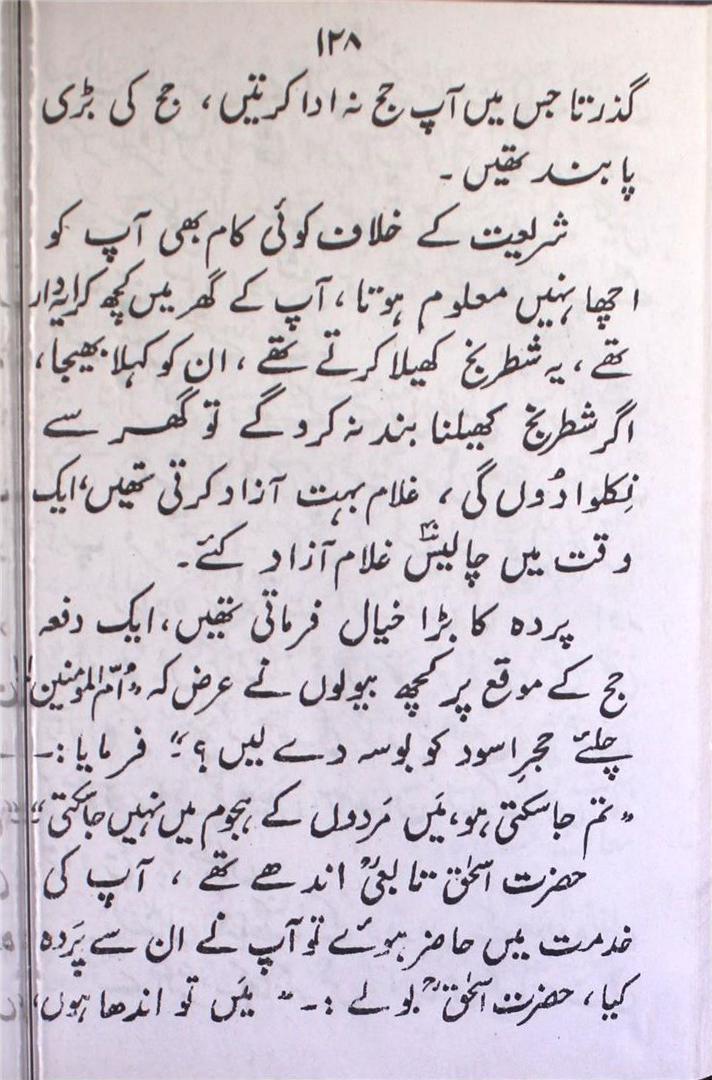 ۱۲۸
گذرتا جس میں آپ حج نہ ادا کرتیں، حج کی بڑی
پابند تھیں۔
شریعت کے خلاف کوئی کام بھی آپ کو
اچھا نہیں معلوم ہوتا، آپ کے گھر میں کچھ کرایہ دار
تھے، یہ شطرنج کھیلا کرتے تھے، ان کو کہلا بھیجا،
اگر شطرنج کھیلنا بند نہ کرو گے تو گھر سے
نِکلوا دُوں گی، غلام بہت آزاد کرتی تھیں، ایک
وقت میں چالیسؔ غلام آزاد کئے۔
پردہ کا بڑا خیال فرماتی تھیں، ایک دفعہ
حج کے موقع پر کچھ بیویوں نے عرض کہ "اُمّ المؤمنین!
چلئے حجرِ اسود کو بوسہ دے لیں؟" فرمایا:۔
"تم جا سکتی ہو، مَیں مَردوں کے ہجوم میں نہیں جا سکتی"
حضرت اسحٰق تابعیؒ اندھے تھے، آپ کی
خدمت میں حاضر ہوئے تو آپ نے ان سے پَردہ
کیا، حضرت اسحٰقؒ بولے :۔ "مَیں تو اندھا ہوں،